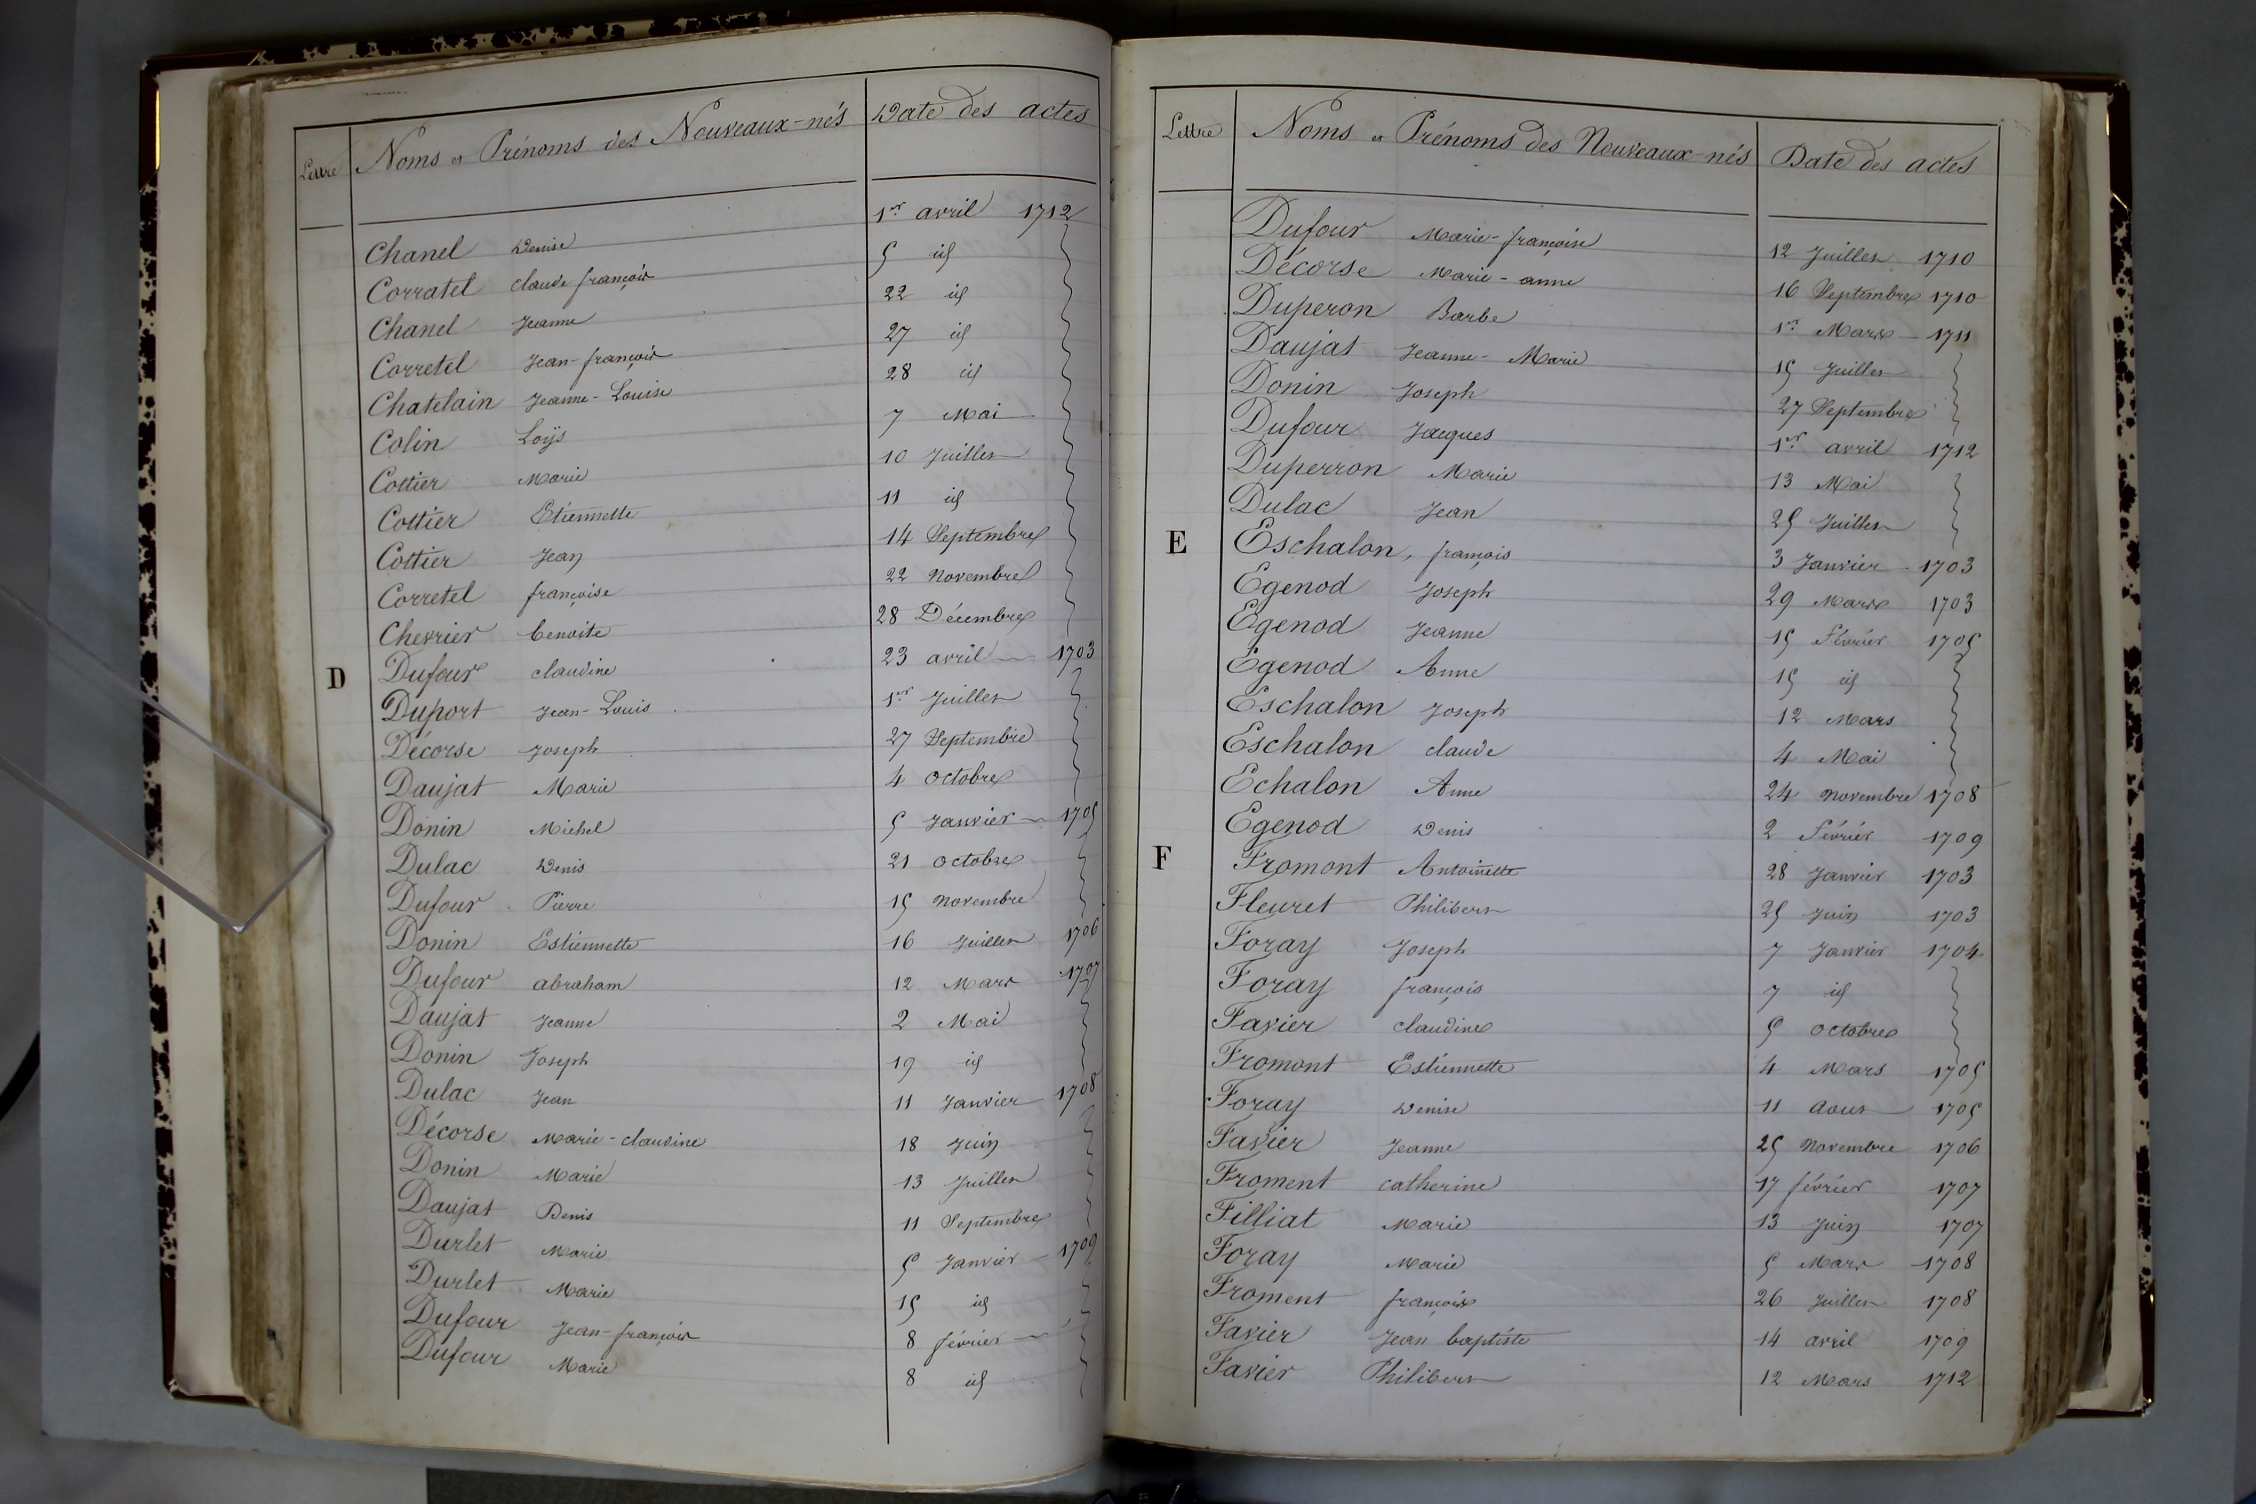 Lettre Noms et Prénoms des Nouveaux-nés Date des actes
Chanel Denise 1er avril 1712
Corratel claude françois 5 id
Chanel Jeanne 22 id
Corretel Jean-françois 27 id
Chatelain Jeanne-Louise 28 id
Colin Loÿs 7 Mai
Cottier Marie 10 Juillet
Cottier Etiennette 11 id
Cottier Jean 14 Septembre
Corretel françoise 22 Novembre
Chevrier benoite 28 Décembre
D Dufour claudine 23 avril 1703
Duport Jean-Louis 1er Juillet
Décorse Joseph 27 Septembre
Daujat Marie 4 Octobre
Donin Michel 5 Janvier 1705
Dulac Denis 21 octobre
Dufour Pierre 15 Novembre
Donin Estiennette 16 Juillet 1706
Dufour abraham 12 Mars 1707
Daujat Jeanne 2 Mai
Donin Joseph 19 id
Dulac Jean 11 Janvier 1708
Décorse Marie-claudine 18 Juin
Donin Marie 13 Juillet
Daujat Denis 11 Septembre
Durlet Marie 5 Janvier 1709
Durlet Marie 15 id
Dufour Jean-françois 8 février
Dufour Marie 8 id
Lettre Noms et Prénoms des Nouveaux-nés Date des actes
Dufour Marie-françoise 12 Juillet 1710
Décorse Marie-anne 16 Septembre 1710
Duperon Barbe 1er Mars 1711
Daujat Jeanne-Marie 15 Juillet
Donin Joseph 27 Septembre
Dufour Jacques 1er avril 1712
Duperron Marie 13 Mai
Dulac Jean 25 Juillet
E Eschalon, françois 3 Janvier 1703
Egenod Joseph 29 Mars 1703
Egenod Jeanne 15 Février 1705
Egenod Anne 15 id
Eschalon Joseph 12 Mars
Eschalon claude 4 Mai
Echalon Anne 24 Novembre 1708
Egenod Denis 2 Février 1709
F Fromont Antoinette 28 Janvier 1703
Fleuret Philibert 25 Juin 1703
Foray Joseph 7 Janvier 1704
Foray françois 7 id
Favier claudine 5 Octobre
Fromont Estiennette 4 Mars 1705
Foray Denise 11 Aout 1705
Favier Jeanne 25 Novembre 1706
Froment catherine 17 février 1707
Filliat Marie 13 Juin 1707
Foray Marie 5 Mars 1708
Froment françois 26 Juillet 1708
Favier Jean baptiste 14 avril 1709
Favier Philibert 12 Mars 1712